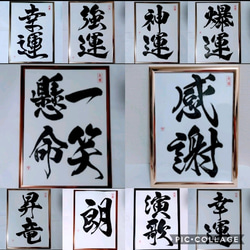 幸運
強運
神運
爆運
一笑
懸命
感謝
昇竜
朗
演歌
幸運
PIC•COLLAGE